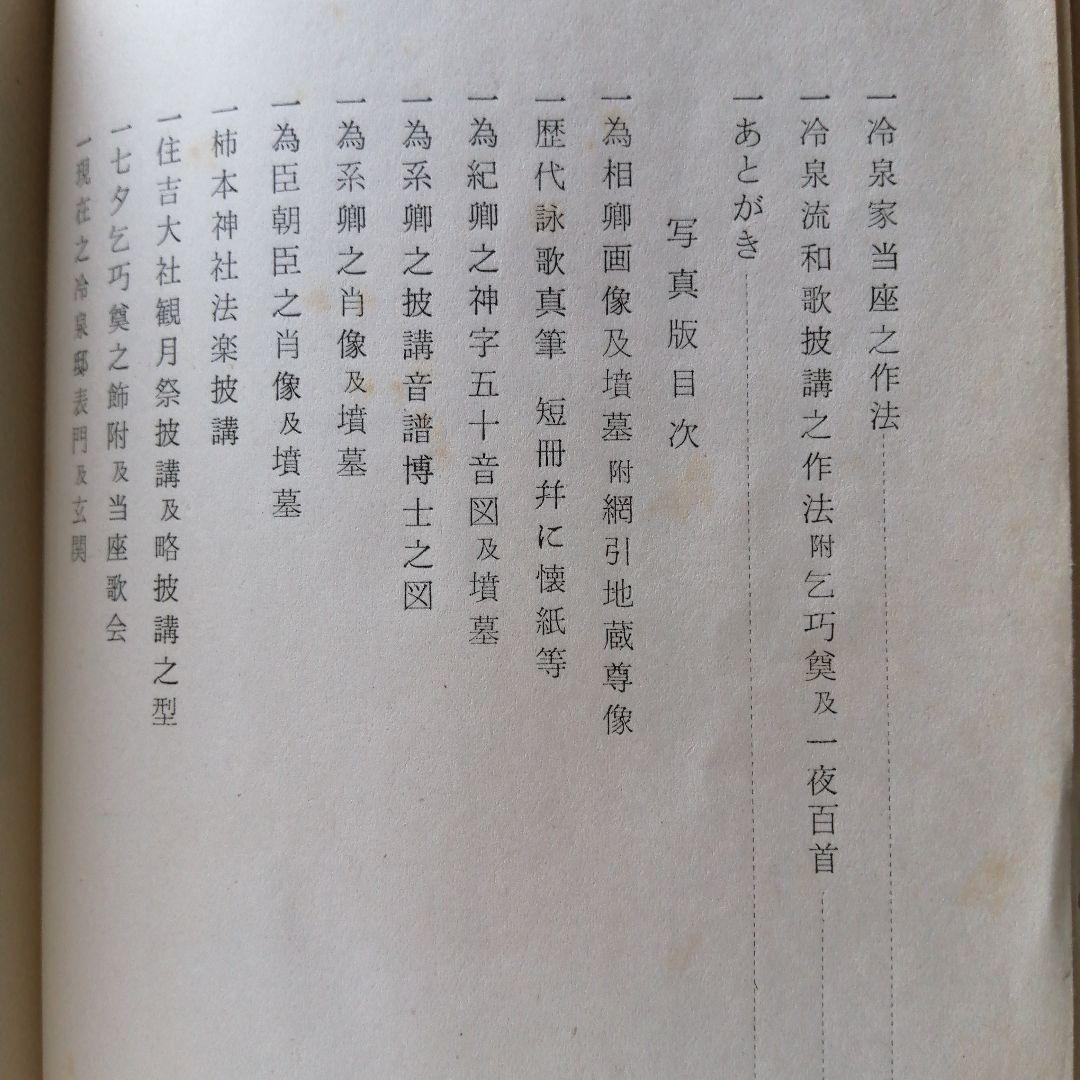 一冷泉家当座之作法
一冷泉流和歌披講之作法附乞巧奠及一夜百首
一あとがき
写真版目次
一為相卿画像及墳墓附網引地蔵尊像
一歴代詠歌真筆　短冊幷に懐紙等
一為紀卿之神字五十音図及墳墓
一為系卿之披講音譜博士之図
一為系卿之肖像及墳墓
一為臣朝臣之肖像及墳墓
一柿本神社法楽披講
一住吉大社観月祭披講及略披講之型
一七夕乞巧奠之飾附及当座歌会
一現在之冷泉邸表門及玄関